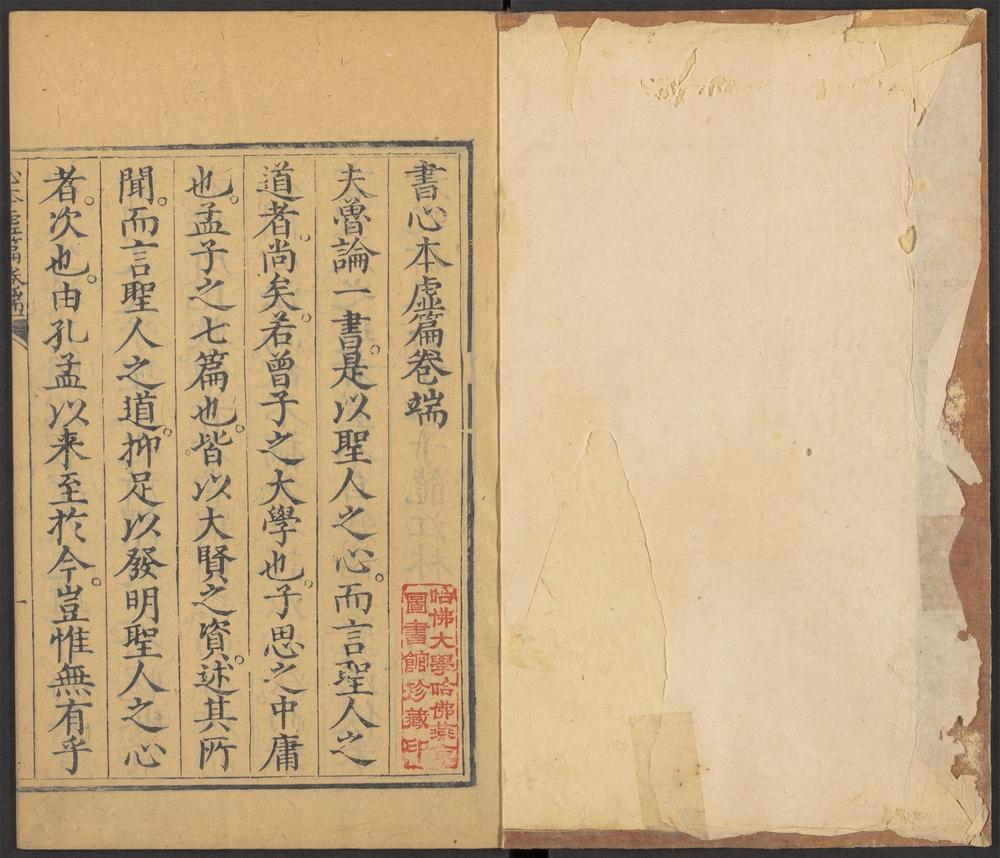 書心本虛篇卷端
夫魯論一書。是以聖人之心。而言聖人之
道者。尚矣。若曾子之大學也。子思之中庸
也。孟子之七篇也。皆以大賢之資。述其所
聞。而言聖人之道。抑足以發明聖人之心
者。次也。由孔孟以來至於今。豈惟無有乎
心本虛篇卷端
一
哈佛大學哈佛燕京
圖書館珍藏印